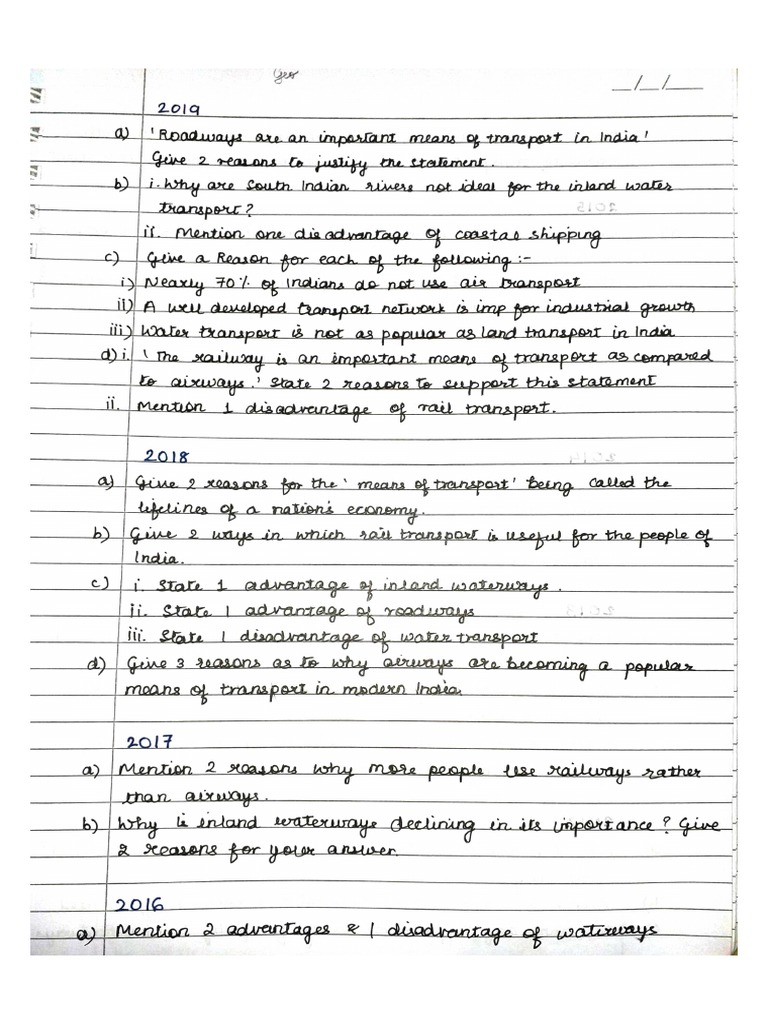 Geo
_/_/__
2019
a) 'Roadways are an important means of transport in India'
Give 2 reasons to justify the statement.
b) i. Why are South Indian rivers not ideal for the inland water
transport?
ii. Mention one disadvantage of coastal shipping
c) Give a Reason for each of the following :-
i) Nearly 70% of Indians do not use air transport
ii) A well developed transport network is imp for industrial growth
iii) Water transport is not as popular as land transport in India
d) i. 'The railway is an important means of transport as compared
to airways.' State 2 reasons to support this statement
ii. Mention 1 disadvantage of rail transport.
2018
a) Give 2 reasons for the 'means of transport' being called the
lifelines of a nation's economy.
b) Give 2 ways in which rail transport is useful for the people of
India.
c) i. State 1 advantage of inland waterways.
ii. State 1 advantage of roadways
iii. State 1 disadvantage of water transport
d) Give 3 reasons as to why airways are becoming a popular
means of transport in modern India.
2017
a) Mention 2 reasons why more people use railways rather
than airways.
b) Why is inland waterways declining in its importance? Give
2 reasons for your answer.
2016
a) Mention 2 advantages & 1 disadvantage of waterways